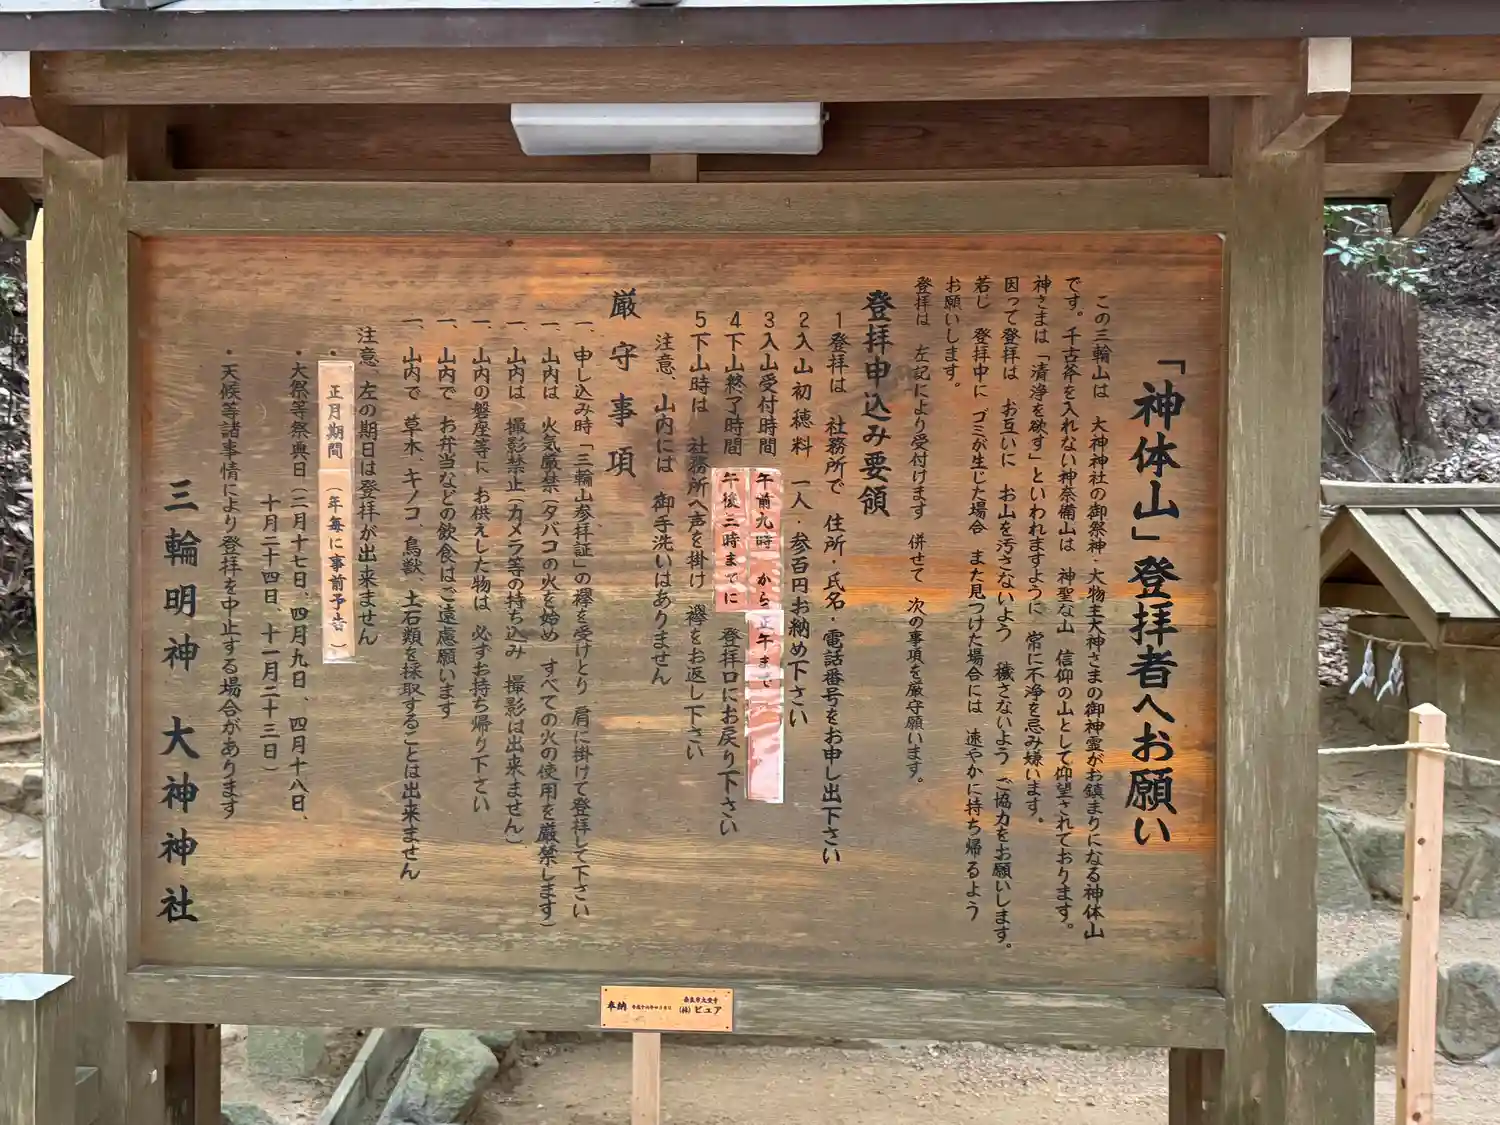 「神体山」登拝者へお願い
この三輪山は 大神神社の御祭神・大物主大神さまの御神霊がお鎮まりになる神体山
です。千古斧を入れない神奈備山は 神聖な山 信仰の山として仰望されております。
神さまは「清浄を欲す」といわれますように 常に不浄を忌み嫌います。
因って登拝は お互いに お山を汚さないよう 穢さないよう ご協力をお願いします。
若し 登拝中に ゴミが生じた場合 また見つけた場合には 速やかに持ち帰るよう
お願いします。
登拝は 左記により受付けます 併せて 次の事項を厳守願います。
登拝申込み要領
1登拝は 社務所で 住所・氏名・電話番号をお申し出下さい
2入山初穂料 一人・参百円お納め下さい
3入山受付時間 午前九時 から 正午まで
4下山終了時間 午後三時までに 登拝口にお戻り下さい
5下山時は 社務所へ声を掛け 襷をお返し下さい
注意、山内には 御手洗いはありません
厳守事項
一、申し込み時「三輪山参拝証」の襷を受けとり 肩に掛けて登拝して下さい
一、山内は 火気厳禁(タバコの火を始め すべての火の使用を厳禁します)
一、山内は 撮影禁止(カメラ等の持ち込み 撮影は出来ません)
一、山内の磐座等に お供えした物は 必ずお持ち帰り下さい
一、山内で お弁当などの飲食はご遠慮願います
一、山内で 草木、キノコ、鳥獣、土石類を採取することは出来ません
注意、左の期日は登拝が出来ません
・正月期間 (年毎に事前予告)
・大祭等祭典日(二月十七日、四月九日、四月十八日、
十月二十四日、十一月二十三日)
・天候等諸事情により登拝を中止する場合があります
三輪明神 大神神社
奉納
(株)ピュア